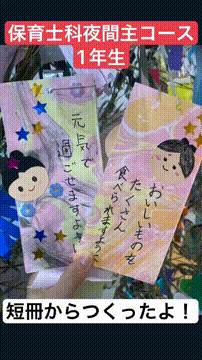 保育士科夜間主コース
1年生
元気で
過ごせますように
おいしいものを
たくさん
食べられますように
短冊からつくったよ！